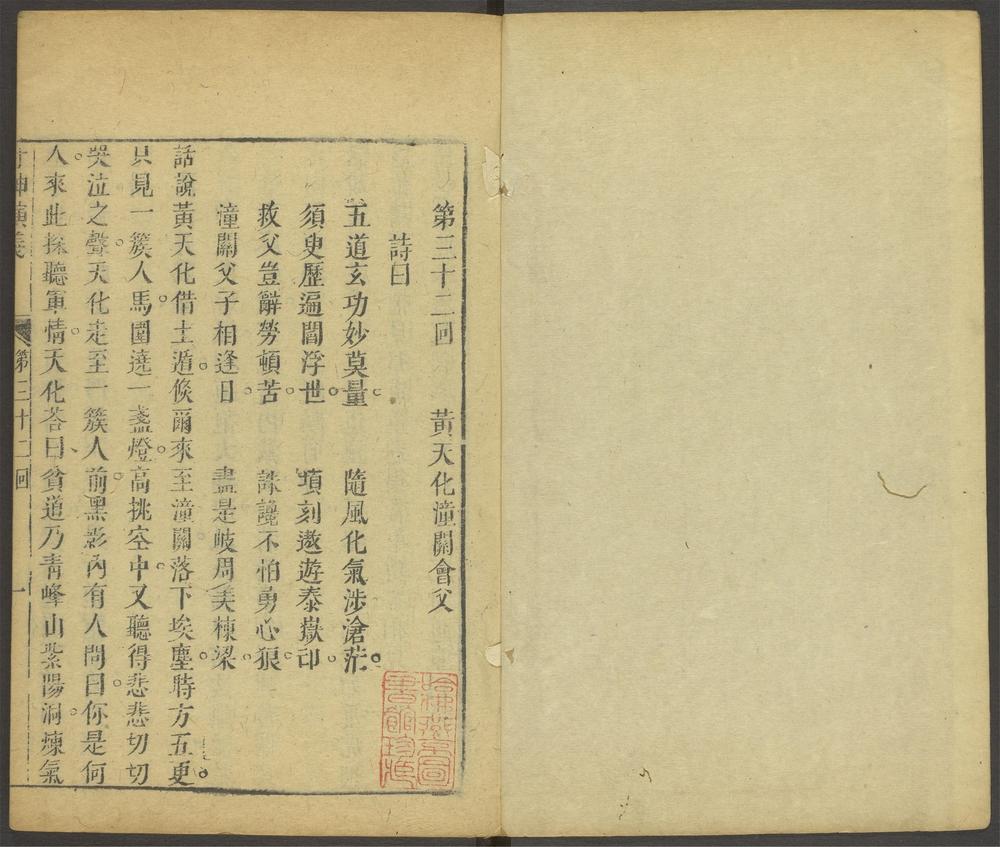 第三十二回　黃天化潼關會父
詩曰
五道玄功妙莫量。　隨風化氣涉滄茫。
須臾歷遍閻浮世。　頃刻遨遊泰嶽邙。
救父豈辭勞頓苦。　誅讒不怕勇心狼。
潼關父子相逢日。　盡是岐周美棟梁。
話說黃天化借土遁。倏爾來至潼關。落下埃塵。時方五更。
只見一簇人馬。圍遶一盞燈。高挑空中。又聽得悲悲切切
哭泣之聲。天化走至一簇人前。黑影內有人問曰。你是何
人。來此探聽軍情。天化荅曰、貧道乃青峰山紫陽洞。煉氣
封神演義　第三十二回　一
哈佛燕京圖
書館珍藏